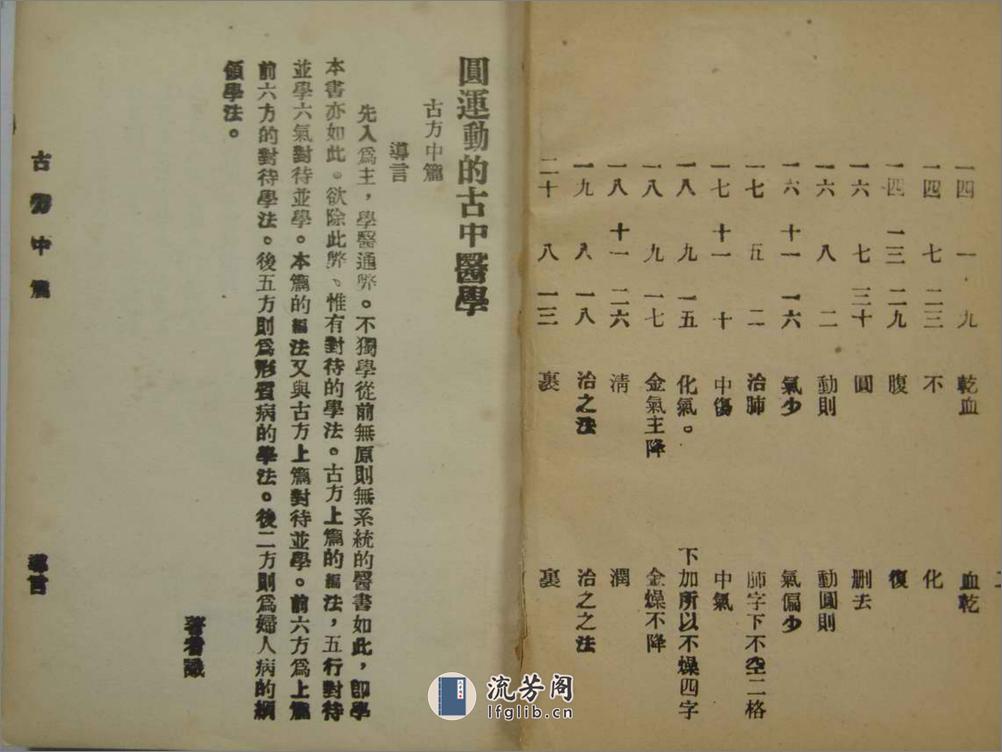 一四 一 九 乾血 血乾
一四 七 二三 不 化
一四 一三 二九 腹 復
一六 七 三十 圓 删去
一六 八 二 動則 動圓則
一六 十一 一六 氣少 氣偏少
一七 五 二 治肺 肺字下不空二格
一七 十一 十 中傷 中氣
一八 九 一五 化氣。 下加所以不燥四字
一八 九 一七 金氣主降 金燥不降
一八 十一 二六 清 潤
一九 八 一八 治之法 治之之法
二十 八 一三 裹 裏
圓運動的古中醫學
古方中篇
導言
先入爲主，學醫通弊。不獨學從前無原則無系統的醫書如此，卽學
本書亦如此。欲除此弊、惟有對待的學法。古方上篇的編法，五行對待
並學六氣對待並學。本篇的編法又與古方上篇對待並學。前六方爲上篇
前六方的對待學法。後五方則爲形質病的學法。後二方則爲婦人病的綱
領學法。
著者識
古方中篇 導言
流芳阁
lfglib.cn